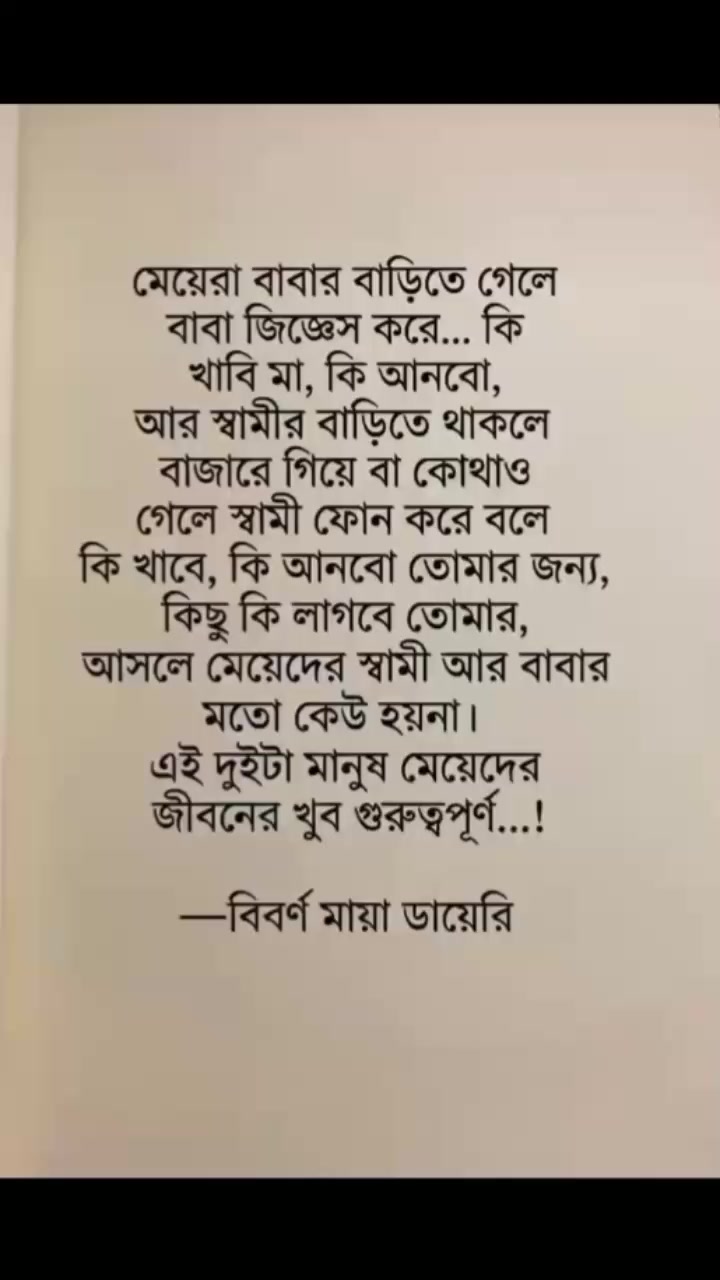 মেয়েরা বাবার বাড়িতে গেলে
বাবা জিজ্ঞেস করে... কি
খাবি মা, কি আনবো,
আর স্বামীর বাড়িতে থাকলে
বাজারে গিয়ে বা কোথাও
গেলে স্বামী ফোন করে বলে
কি খাবে, কি আনবো তোমার জন্য,
কিছু কি লাগবে তোমার,
আসলে মেয়েদের স্বামী আর বাবার
মতো কেউ হয়না।
এই দুইটা মানুষ মেয়েদের
জীবনের খুব গুরুত্বপূর্ণ...!
—বিবর্ণ মায়া ডায়েরি